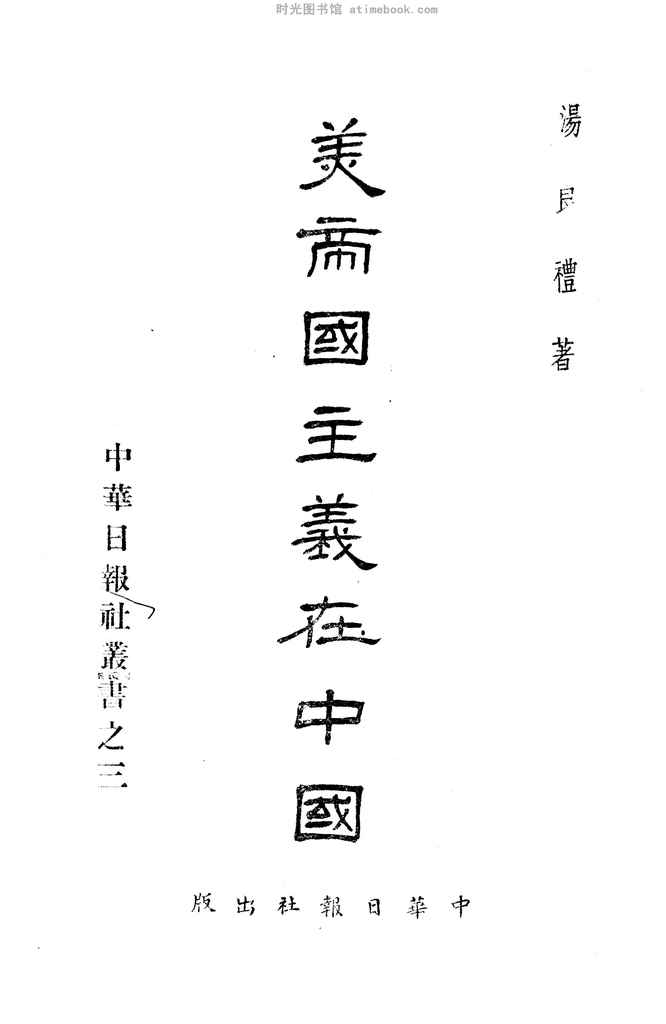 时光图书馆 atimebook.com
湯民禮著
美帝國主義在中國
中華日報社叢書之三
版出社報日華中